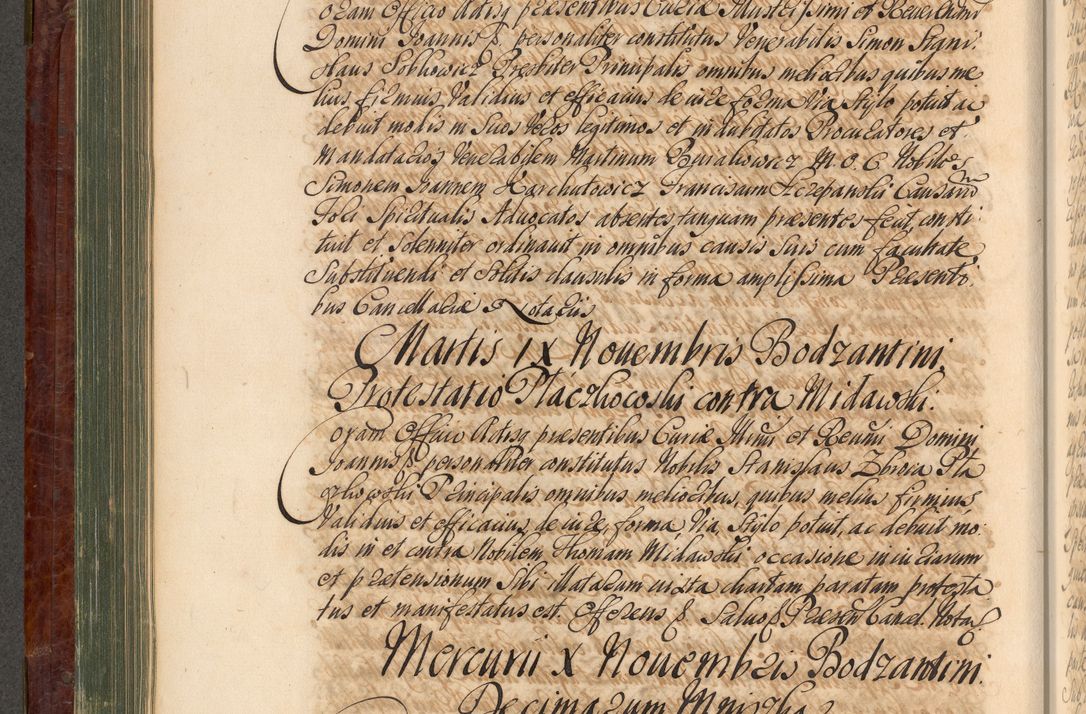 oram Officio Actisq præsentibus Curiæ Illustrissimi et Reverendi
Domini Joannis &. personaliter constitutus Venerabilis Simon Stani:
slaus Sobkowicz Presbiter Principalis omnibus melioribus quibus me
lius, firmius, Validius et efficacius de iure forma Via Stylo potuit ac
debuit modis in Suos Veros legitimos et indubitatos Procuratores et
Mandatarios Venerabilem Martinum M. O. C. Nobiles
Simonem Joannem Karchutowicz Franciscum Szczepanski Causarum
Fori Spiritualis Advocatos absentes tanquam præsentes fecit, consti:
tuit et Solenniter ordinavit in omnibus causis Suis cum facultate
Substituendi et Solitis clausulis in forma amplissima Præsenti:
bus Cancellariæ Notariis
Martis IX Novembris Bodzantini.
Protestatio Placzkocoski contra Midawski.
oram Officio Actisq præsentibus Curiæ Illmi et Rendmi Domini
Joannis &. personaliter constitutus Nobilis Stanislaus Zbroia Pla
czkowski Principalis omnibus melioribus, quibus melius firmius
Validius et efficacius, de iure, forma Via, Stylo potuit, ac debuit mo:
dis in et contra Nobilem Thomam Midawski occasione iniuriarum
et prætensionum Sibi illatarum iuxta chartam paratam protesta
tus et manifestatus est. Offerens &. Salvo &. Præsen Cancel. Nota&.
Mercurii X Novembris Bodzantini.
Decimarum